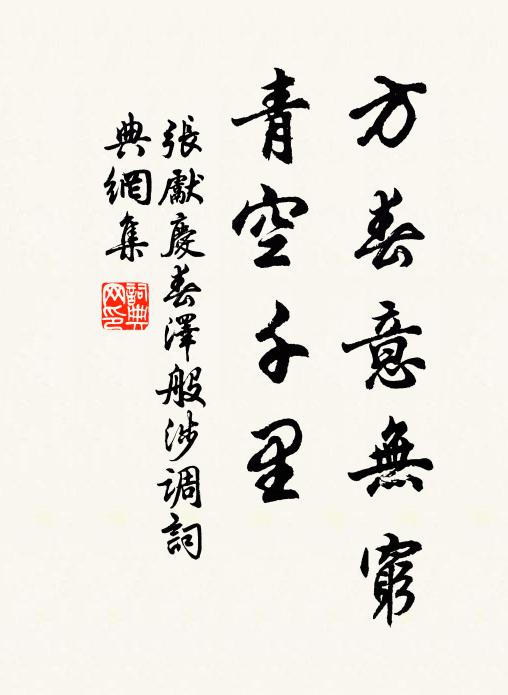 方春意無窮
青空千里
張獻慶春澤般涉調詞
典網集
詞典
网印